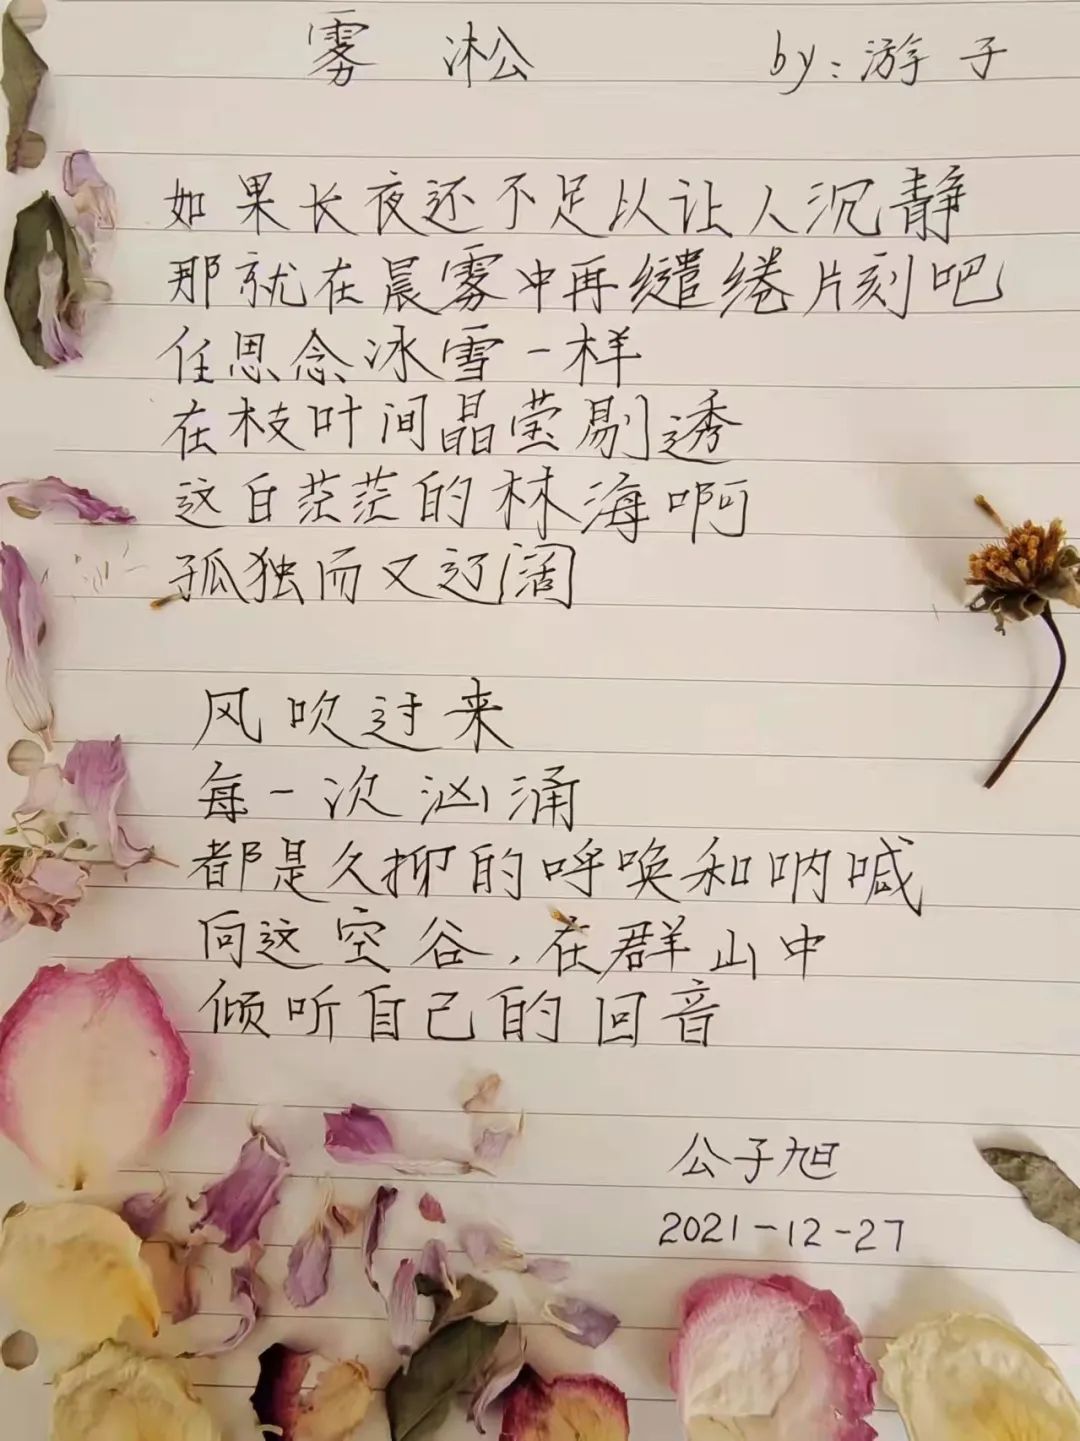 雾凇 by:游子
如果长夜还不足以让人沉静
那就在晨雾中再缱绻片刻吧
任思念冰雪一样
在枝叶间晶莹剔透
这白茫茫的林海啊
孤独而又辽阔
风吹过来
每一次汹涌
都是久抑的呼唤和呐喊
向这空谷,在群山中
倾听自己的回音
公子旭
2021-12-27